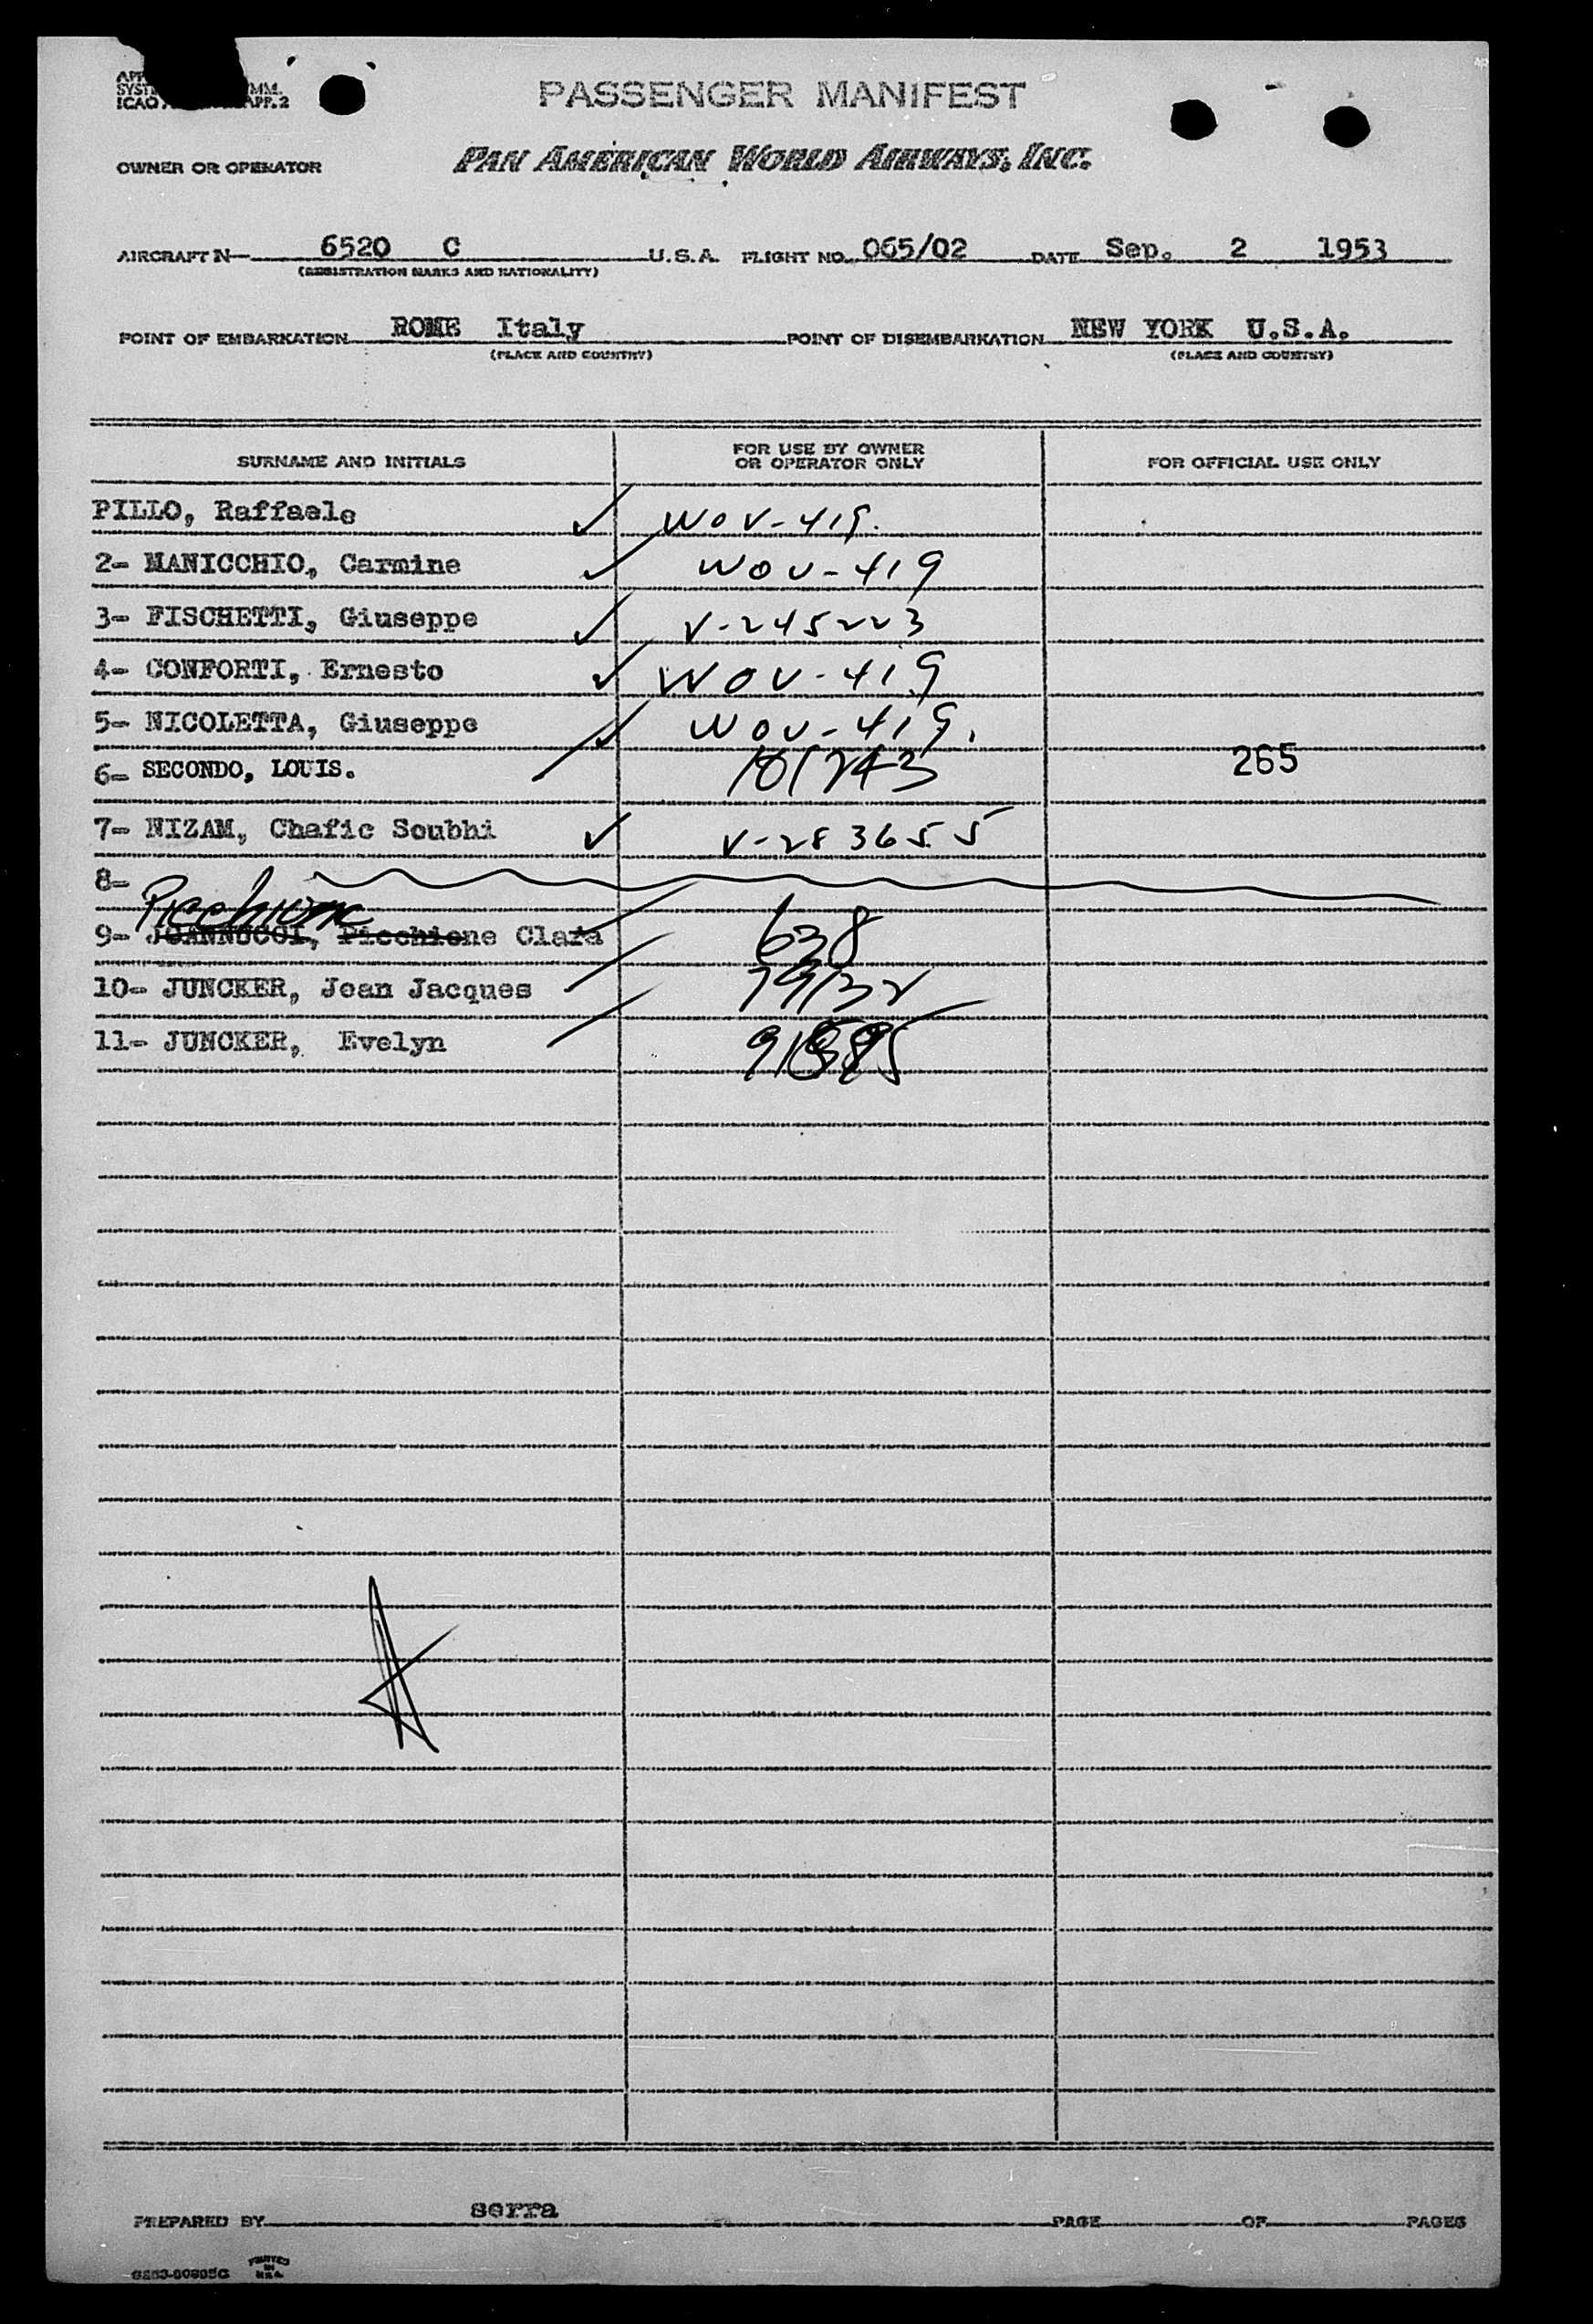 PASSENGER MANIFEST
OWNER OR OPERATOR PAN AMERICAN WORLD AIRWAYS, INC.
AIRCRAFT N 6520 C U.S.A. FLIGHT NO. 065/02 DATE Sep. 2 1953
(REGISTRATION MARKS AND NATIONALITY)
POINT OF EMBARKATION ROME Italy POINT OF DISEMBARKATION NEW YORK U.S.A.
(PLACE AND COUNTRY) (PLACE AND COUNTRY)
SURNAME AND INITIALS FOR USE BY OWNER OR OPERATOR ONLY FOR OFFICIAL USE ONLY
PILLO, Raffaele WOV-419.
2- MANICCHIO, Carmine WOV-419
3- FISCHETTI, Giuseppe V-245223
4- CONFORTI, Ernesto WOV-419
5- NICOLETTA, Giuseppe WOV-419.
6- SECONDO, LOUIS. 101243 265
7- NIZAM, Chafic Soubhi V-283655
8-
Picchione
9- JOANNUCCI, Picchione Clara 638
10- JUNCKER, Jean Jacques 79132
11- JUNCKER, Evelyn
PREPARED BY serra PAGE OF PAGES
PRINTED IN U.S.A.